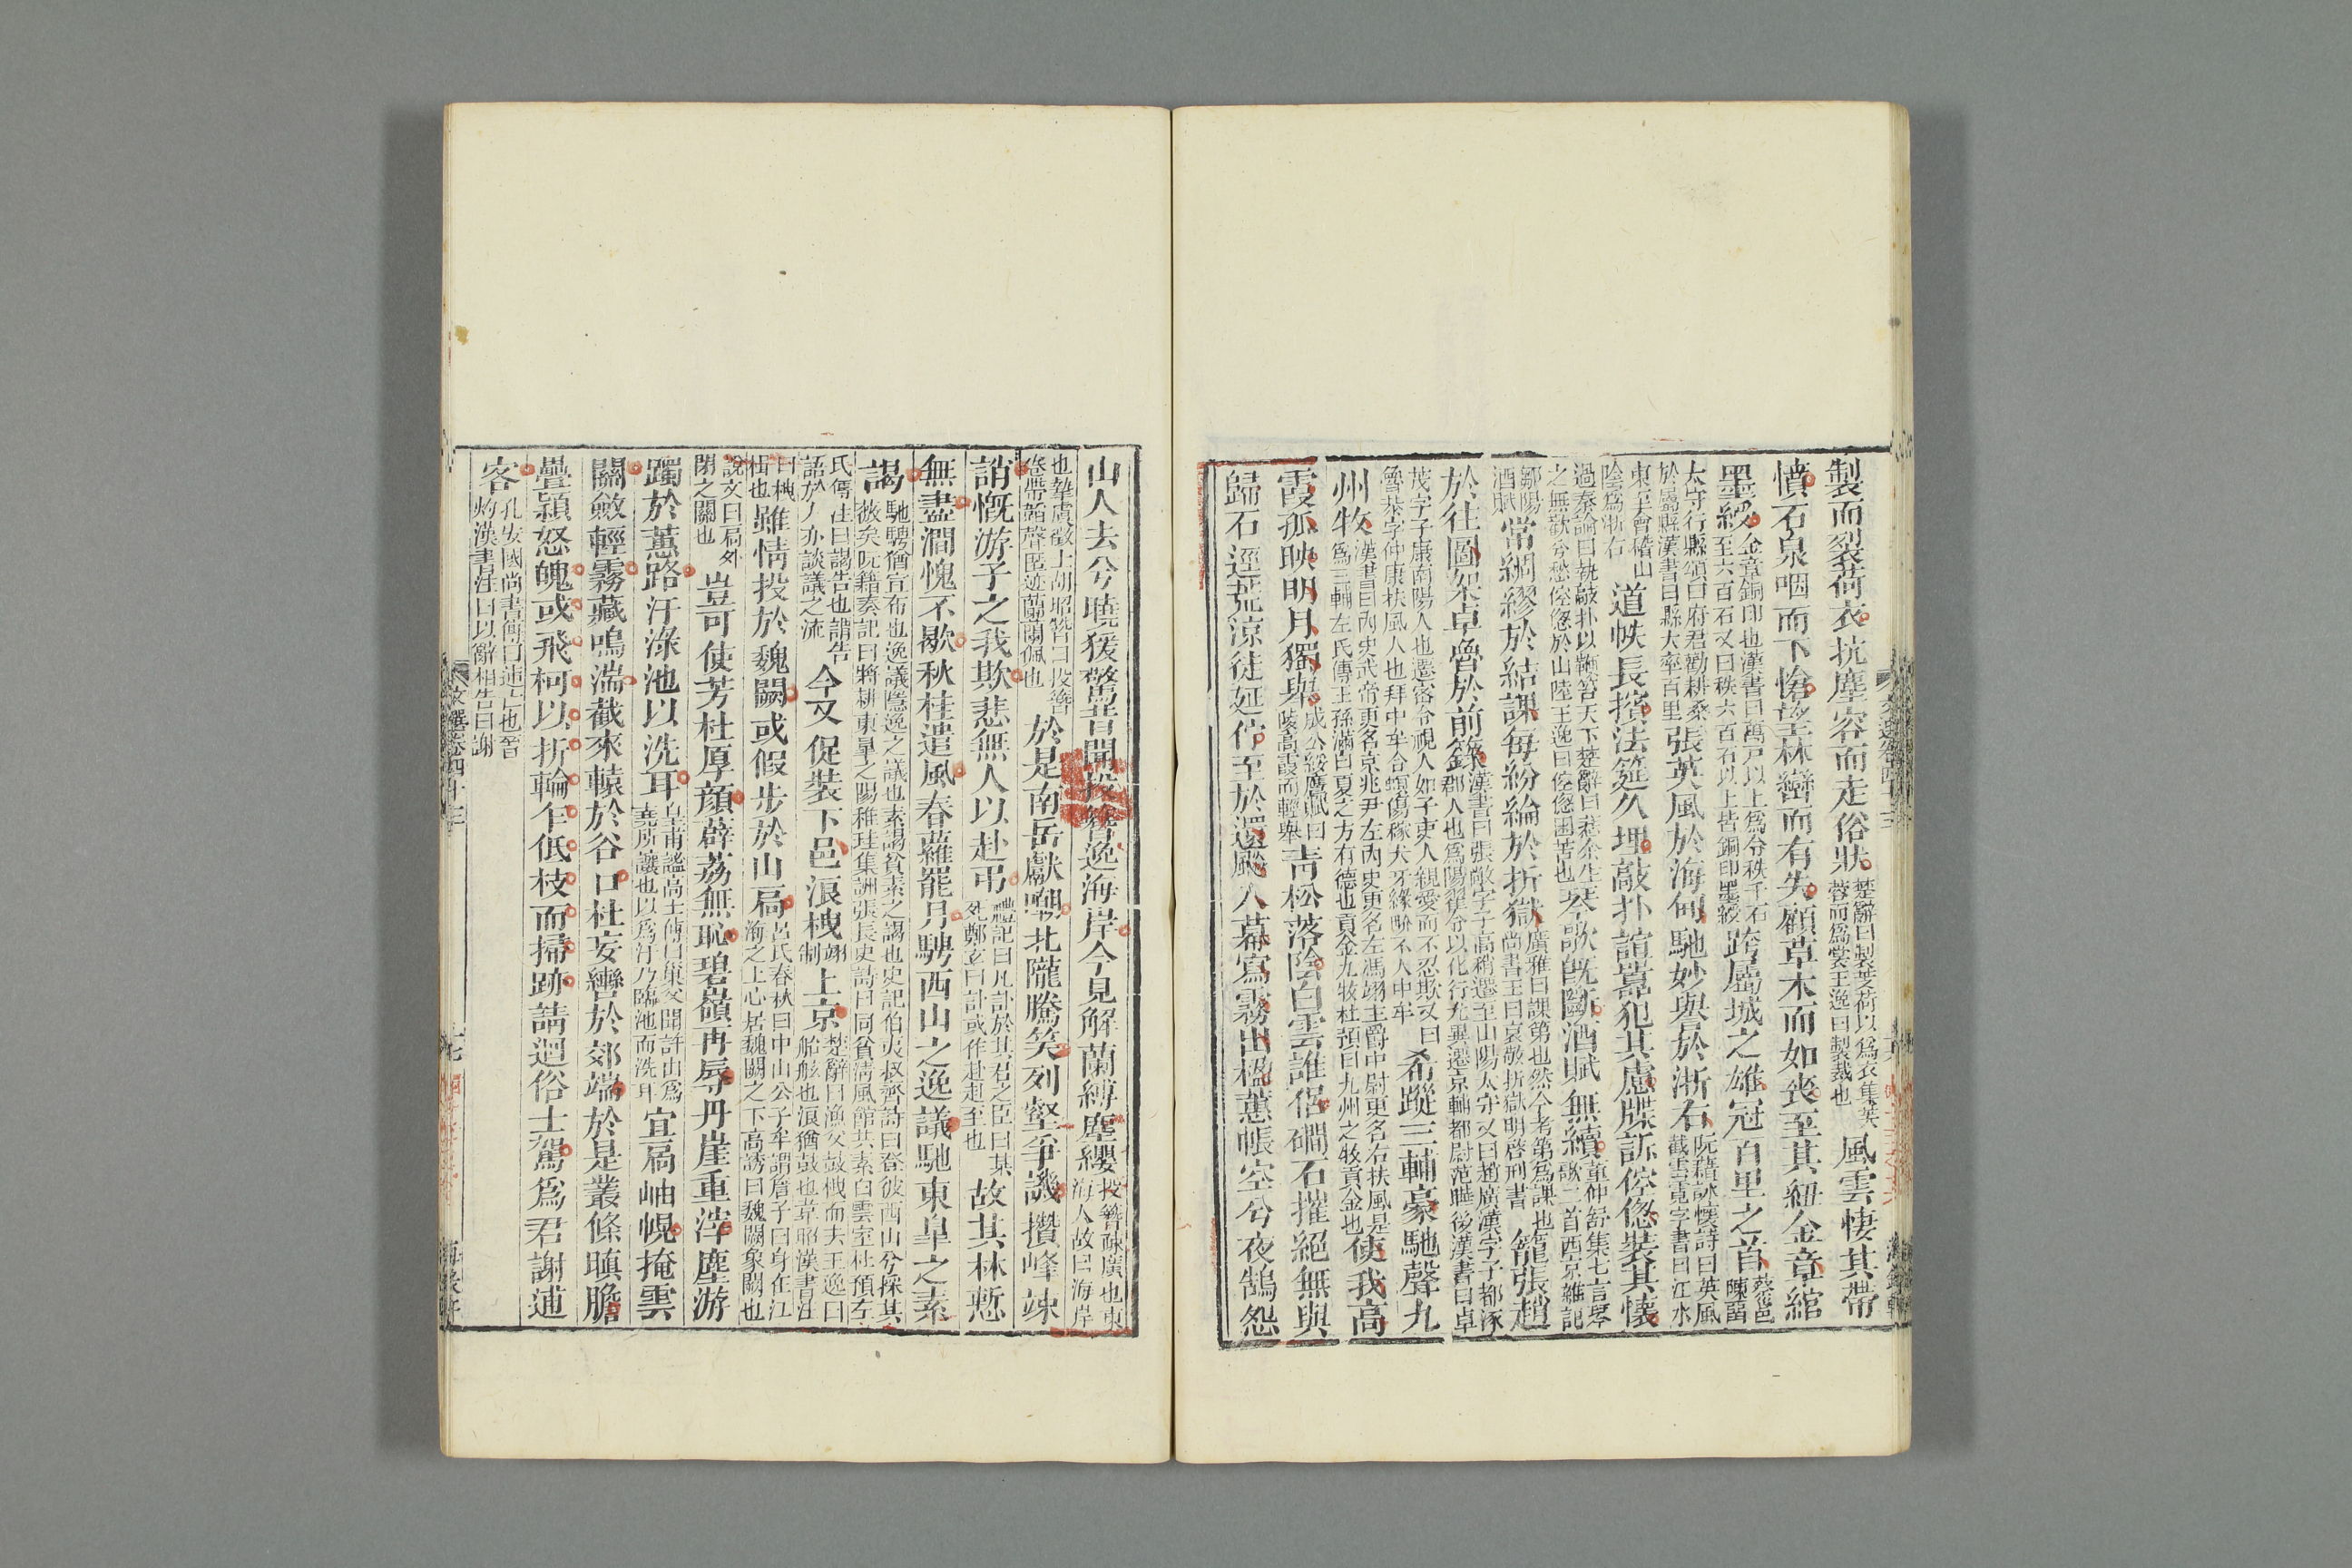 製而裂荷衣抗塵容而走俗狀楚辭曰製芰荷以爲衣集芙蓉而爲裳王逸曰製裁也風雲悽其帶
憤石泉咽而下愴望林巒而有失顧草木而如喪至其紐金章綰
墨綬金章銅印也漢書曰萬戶以上爲令秩千石至六百石又曰秩六百石以上皆銅印墨綬跨屬城之雄冠百里之首蔡邕陳留
太守行縣頌曰府君勸耕桑於屬縣漢書曰縣大率百里張英風於海甸馳妙譽於浙右阮籍詠懷詩曰英風截雲霓字書曰江水
東至會稽山陰爲浙右道帙長擯法筵久埋敲扑諠囂犯其慮牒訴倥傯裝其懷
過秦論曰執敲扑以鞭笞天下楚辭曰悲余生之無歡兮愁倥傯於山陸王逸曰倥傯困苦也琴歌既斷酒賦無續董仲舒集七言琴歌二首西京雜記
鄒陽酒賦常綢繆於結課每紛綸於折獄廣雅曰課第也然今考第爲課也尚書王曰哀敬折獄明啓刑書籠張趙
於往圖架卓魯於前籙漢書曰張敞字子高稍遷至山陽太守又曰趙廣漢字子都涿郡人也爲陽翟令以化行尤異遷京輔都尉范曄後漢書曰卓
茂字子康南陽人也遷密令視人如子吏人親愛而不忍欺又曰魯恭字仲康扶風人也拜中牟令螟傷稼犬牙緣界不入中牟希蹤三輔豪馳聲九
州牧漢書曰內史武帝更名京兆尹左內史更名左馮翊主爵中尉更名右扶風是爲三輔左氏傳王孫滿曰夏之方有德也貢金九牧杜預曰九州之牧貢金也使我高
霞孤映明月獨舉成公綏鷹賦曰陵高霞而輕舉青松落陰白雲誰侶磵石摧絕無與
歸石逕荒涼徒延佇至於還飈入幕寫霧出楹蕙帳空兮夜鵠怨
山人去兮曉猨驚昔聞投簪逸海岸今見解蘭縛塵纓投簪疎廣也東海人故曰海岸
也摯虞徵士胡昭贊曰投簪卷帶韜聲匿迹蘭蘭佩也於是南岳獻嘲北隴騰笑列壑爭譏攢峰竦
誚慨游子之我欺悲無人以赴弔禮記曰凡訃於其君之臣曰某死鄭玄曰訃或作赴赴至也故其林慙
無盡澗愧不歇秋桂遣風春蘿罷月騁西山之逸議馳東皐之素
謁馳騁猶宣布也逸議隱逸之議也素謁貧素之謁也史記伯夷叔齊詩曰登彼西山兮採其薇矣阮籍奏記曰將耕東皐之陽稚珪集訓張長史詩曰同貧清風館共素白雲室杜預左
氏傳注曰謁告也謂告語於人亦談議之流今又促裝下邑浪栧翊制上京楚辭曰漁父鼓栧而去王逸曰船舷也浪猶鼓也韋昭漢書注
曰栧楫也雖情投於魏闕或假步於山扃呂氏春秋曰中山公子牟謂詹子曰身在江海之上心居魏闕之下高誘曰魏闕象闕也
說文曰扃外閉之關也豈可使芳杜厚顏薜荔無恥碧嶺再辱丹崖重滓塵游
躅於蕙路汙淥池以洗耳皇甫謐高士傳曰巢父聞許由爲堯所讓也以爲汙乃臨池而洗耳宜扃岫幌掩雲
關斂輕霧藏鳴湍截來轅於谷口杜妄轡於郊端於是叢條瞋膽
疊穎怒魄或飛柯以折輪乍低枝而掃跡請迴俗士駕爲君謝逋
客孔安國尚書傳曰逋亡也晉灼漢書注曰以辭相告曰謝
文選卷四十三